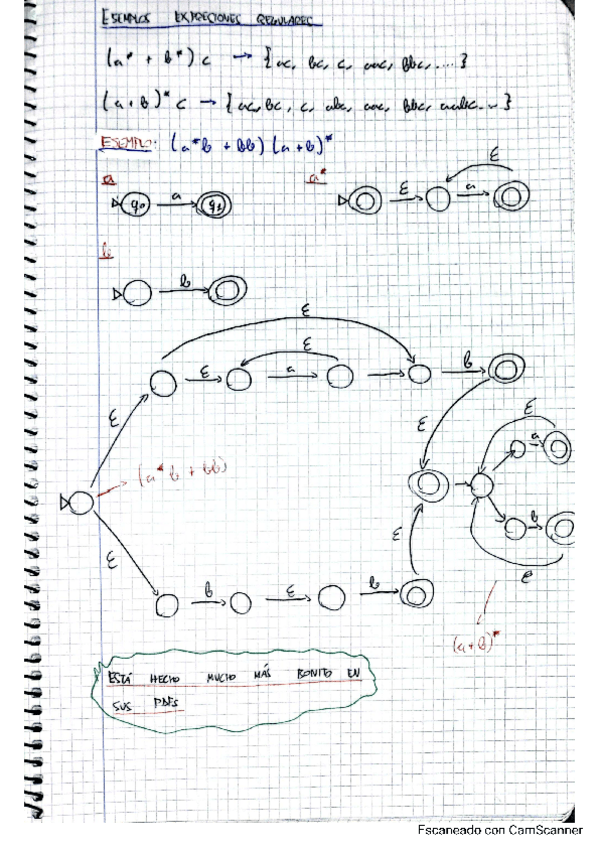 EJEMPLOS EXPRESIONES REGULARES
(a* + b*) c → {ac, bc, c, aac, bbc, ....}
(a+b)* c → {ac, bc, c, abc, aac, bbc, aabc...}
EJEMPLO: (a*b + bb) (a+b)*
a
a*
q0 a q1
ε a ε
b
b
ε
ε
ε a b
ε
ε
ε
a
(a*b + bb)
b
ε
ε
ε
b ε b
(a+b)*
ESTÁ HECHO MUCHO MÁS BONITO EN
SUS PDFS
Escaneado con CamScanner